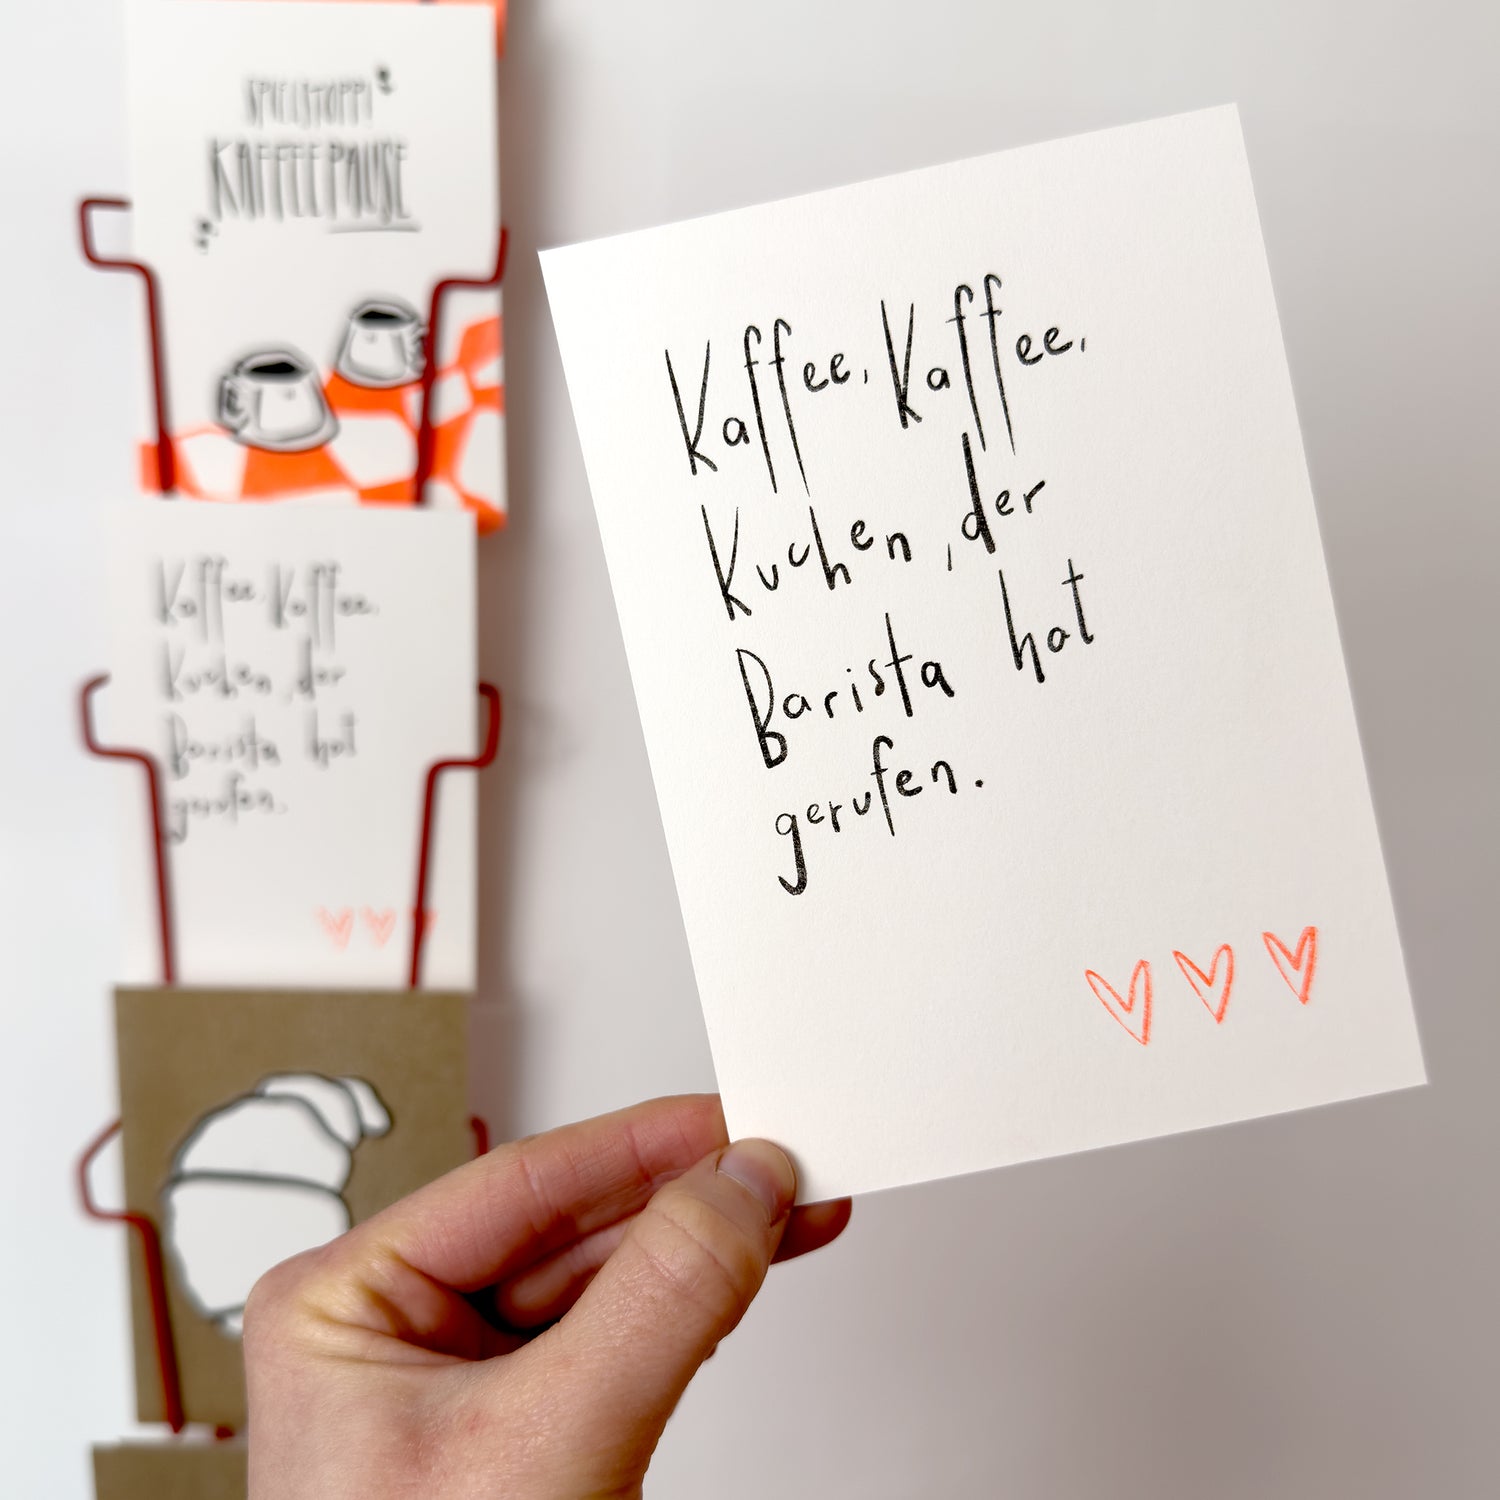 SPIELSTOPP!
KAFFEEPAUSE
Kaffee, Kaffee,
Kuchen, der
Barista hat
gerufen.
Kaffee, Kaffee,
Kuchen, der
Barista hat
gerufen.